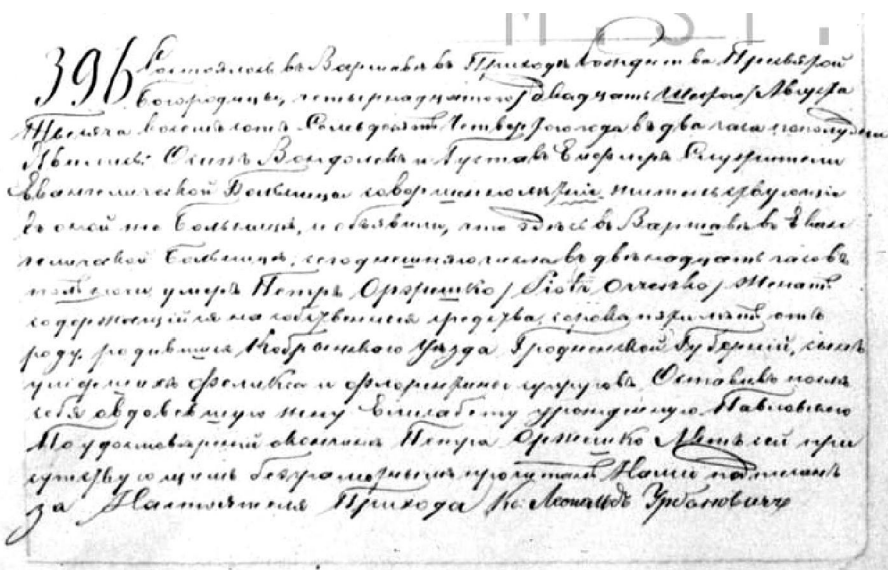 396 Состоялось въ Варшавѣ въ Приходѣ Рождества Пресвятой
Богородицы, четырнадцатого / двадцать шестого / Августа
Тысяча восемьсотъ Семьдесятъ Четвертого года въ два часа пополудни
Явились: Осипъ и Густавъ Служители
Евангелической Больницы совершеннолѣтніе, жительствующіе
въ оной же Больницѣ, и объявили, что здѣсь въ Варшавѣ въ Еван
гелической Больницѣ, сегодняшняго числа въ двѣнадцать часовъ
умеръ Петръ Оржешко / Piotr Orzeszko / женатъ
содержащійся на собственныя средства, сорока лѣтъ отъ
роду, родившійся Кобринского Уѣзда Гродненской Губерніи, сынъ
умершихъ Феликса и Флорентины супруговъ, Оставивъ послѣ
себя овдовѣвшую жену Елизабету урожденную Павловскую
По удостовѣреніи о кончинѣ Петра Оржешко Актъ сей при
сутствующимъ безграмотнымъ прочитанъ Нами подписанъ
за Настоятеля Прихода Кс. Леопольдъ Урбановичъ
М